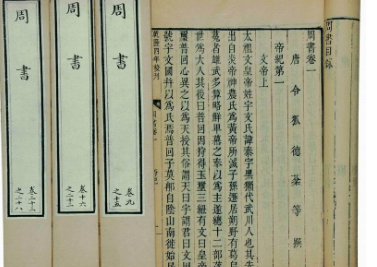 周書目錄
周書卷一
唐令狐德棻等撰
帝紀第一
文帝上
太祖文皇帝姓宇文氏諱泰字黑獺代武川人也其先
出自炎帝神農氏爲黃帝所滅子孫遯居朔野有葛烏
菟者雄武多算略鮮卑慕之奉以爲主遂總十二部
世爲大人其後曰普回因狩得玉璽三紐有文曰皇帝
璽普回心異之以爲天授其俗謂天曰宇謂君曰文因
號宇文國幷以爲氏焉普回子莫那自陰山南徙始居
乾隆四年校刊
周書
卷九
之十五
周書
卷十六
周書